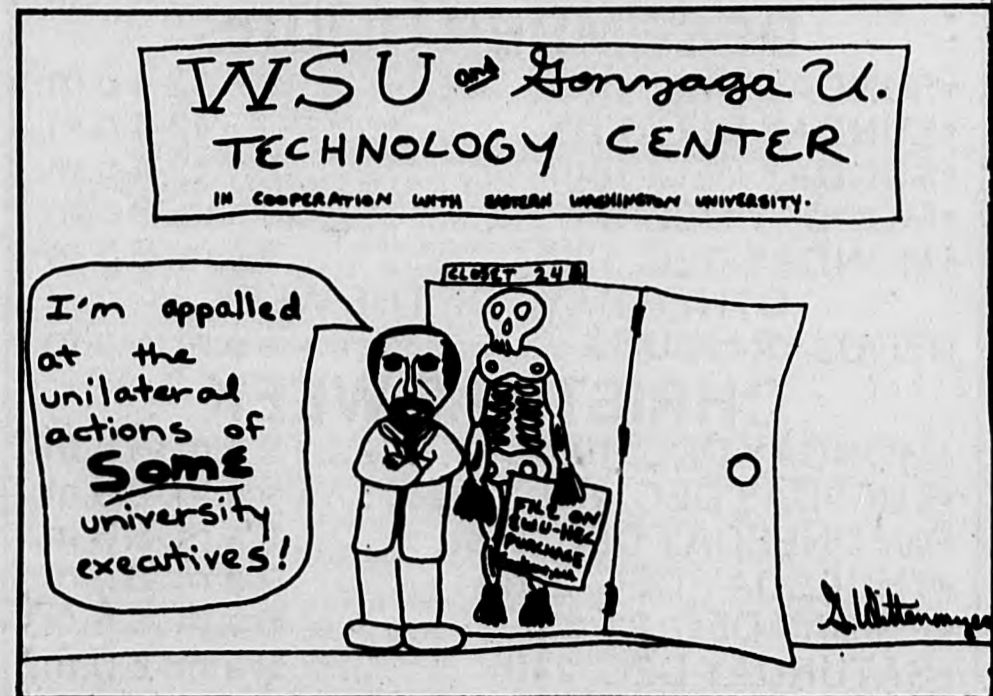 WSU and Gonzaga U.
TECHNOLOGY CENTER
IN COOPERATION WITH EASTERN WASHINGTON UNIVERSITY.
CLOSET 24
I'm appalled
at the
unilateral
actions of
Some
university
executives!
FILE ON
EWU-HEC
PURCHASE
G. Wittenmyer